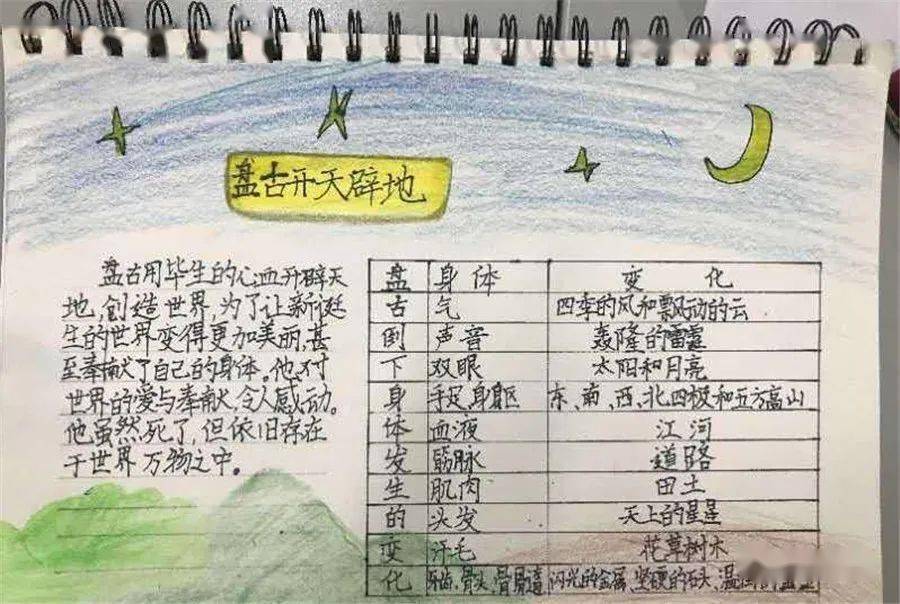 盘古开天辟地
盘古用毕生的心血开辟天
地,创造世界,为了让新诞
生的世界变得更加美丽,甚
至奉献了自己的身体。他对
世界的爱与奉献,令人感动。
他虽然死了,但依旧存在
于世界万物之中。
盘 身体 变化
古 气 四季的风和飘动的云
倒 声音 轰隆的雷霆
下 双眼 太阳和月亮
身 手足、身躯 东、南、西、北四极和五方高山
体 血液 江河
发 筋脉 道路
生 肌肉 田土
的 头发 天上的星星
变 汗毛 花草树木
化 牙齿、骨头、骨髓 闪光的金属、坚硬的石头、温